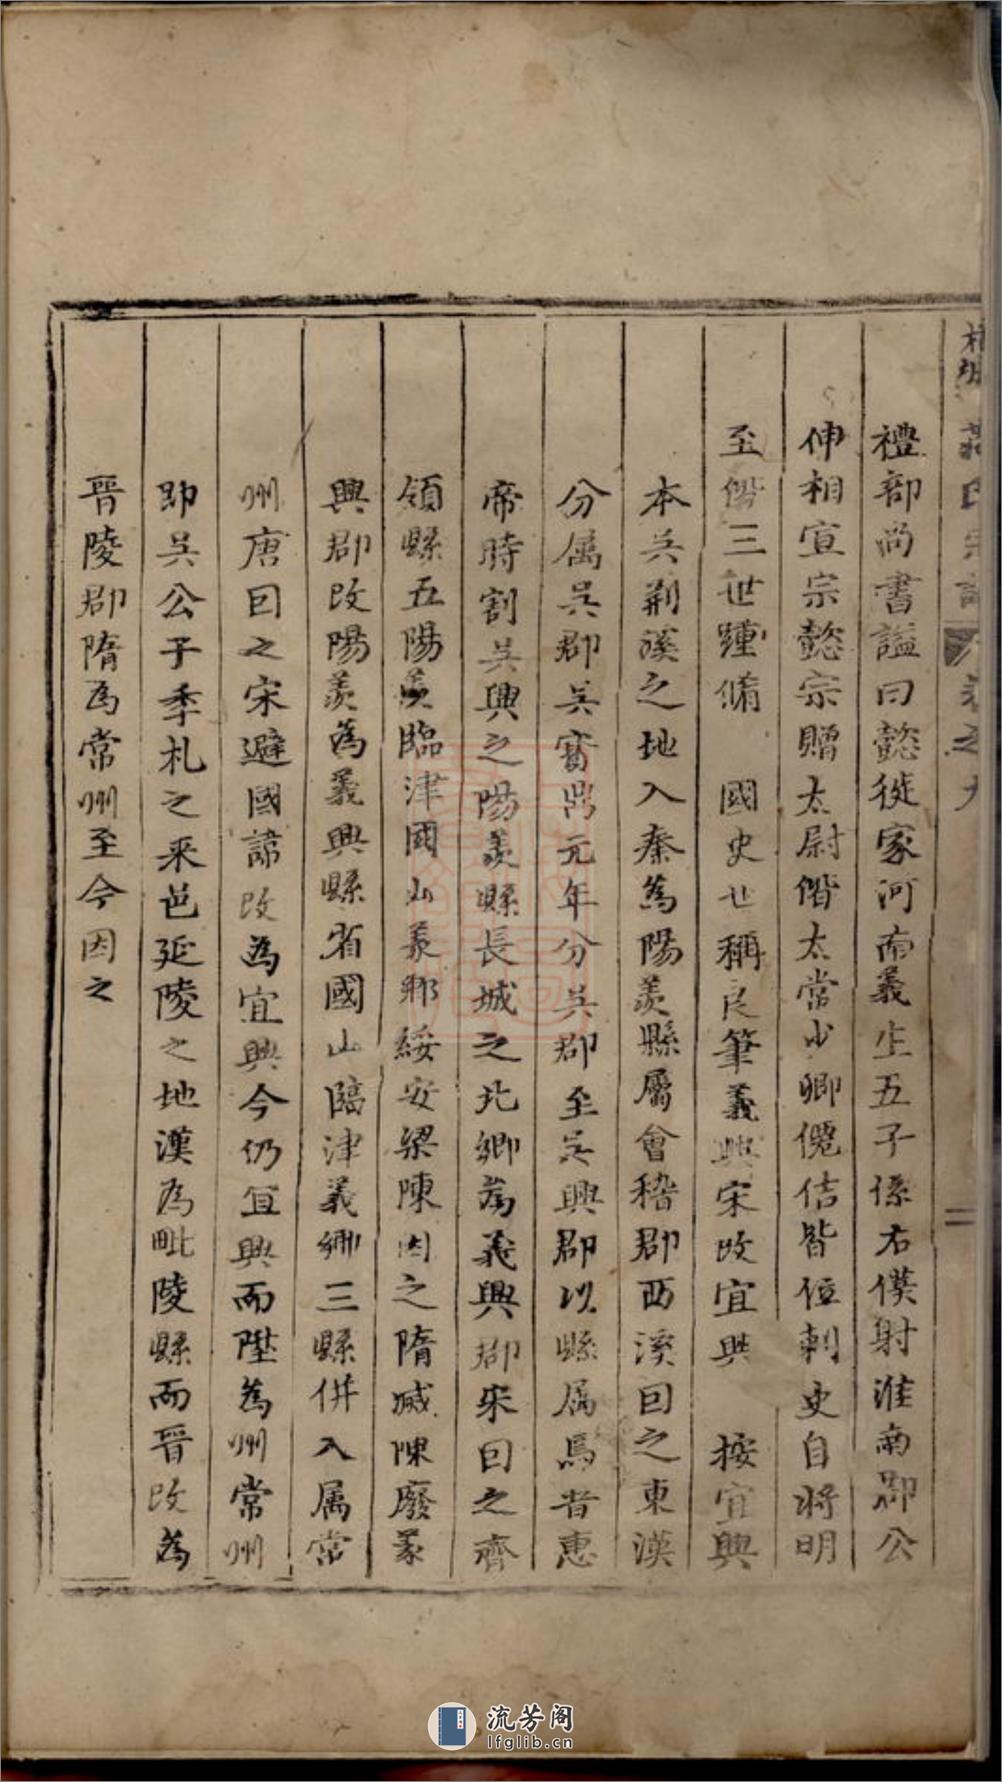 禮部尚書謚曰懿徙家河南義生五子係右僕射淮南郡公
伸相宣宗懿宗贈太尉偕太常少卿僊佶皆位刺史自將明
至偕三世踵脩 國史世稱良筆義興宋改宜興 按宜興
本吳荆溪之地入秦為陽羡縣屬會稽郡西溪囙之東漢
分属吳郡吳寳鼎元年分吳郡至吳興郡以縣属焉晋惠
帝時割吳興之陽羡縣長城之北鄉為義興郡宋囙之齊
領縣五陽羡臨津國山義鄉綏安梁陳因之隋滅陳廢義
興郡改陽羡為義興縣省國山臨津義鄉三縣併入属常
州唐囙之宋避國諱改為宜興今仍宜興而陞為州常州
即吳公子季札之采邑延陵之地漢為毗陵縣而晋改為
晋陵郡隋為常州至今因之
氏宗譜 卷之九
二
流芳阁
lfglib.cn